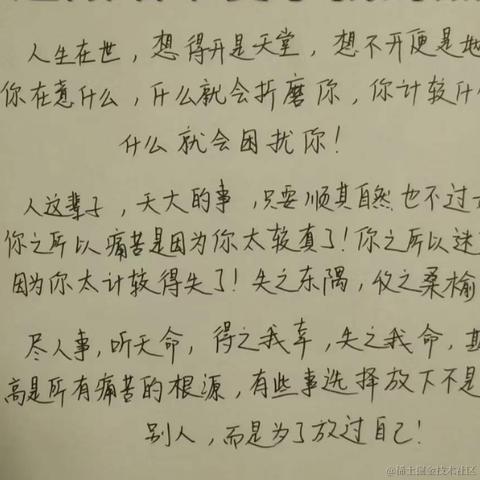 人生在世，想得开是天堂，想不开便是
你在意什么，什么就会折磨你，你计较什
什么就会困扰你！
人这辈子，天大的事，只要顺其自然也不过
你之所以痛苦是因为你太较真了！你之所以迷
因为你太计较得失了！失之东隅，收之桑榆
尽人事，听天命，得之我幸，失之我命，
高是所有痛苦的根源，有些事选择放下不是
别人，而是为了放过自己！
@稀土掘金技术社区